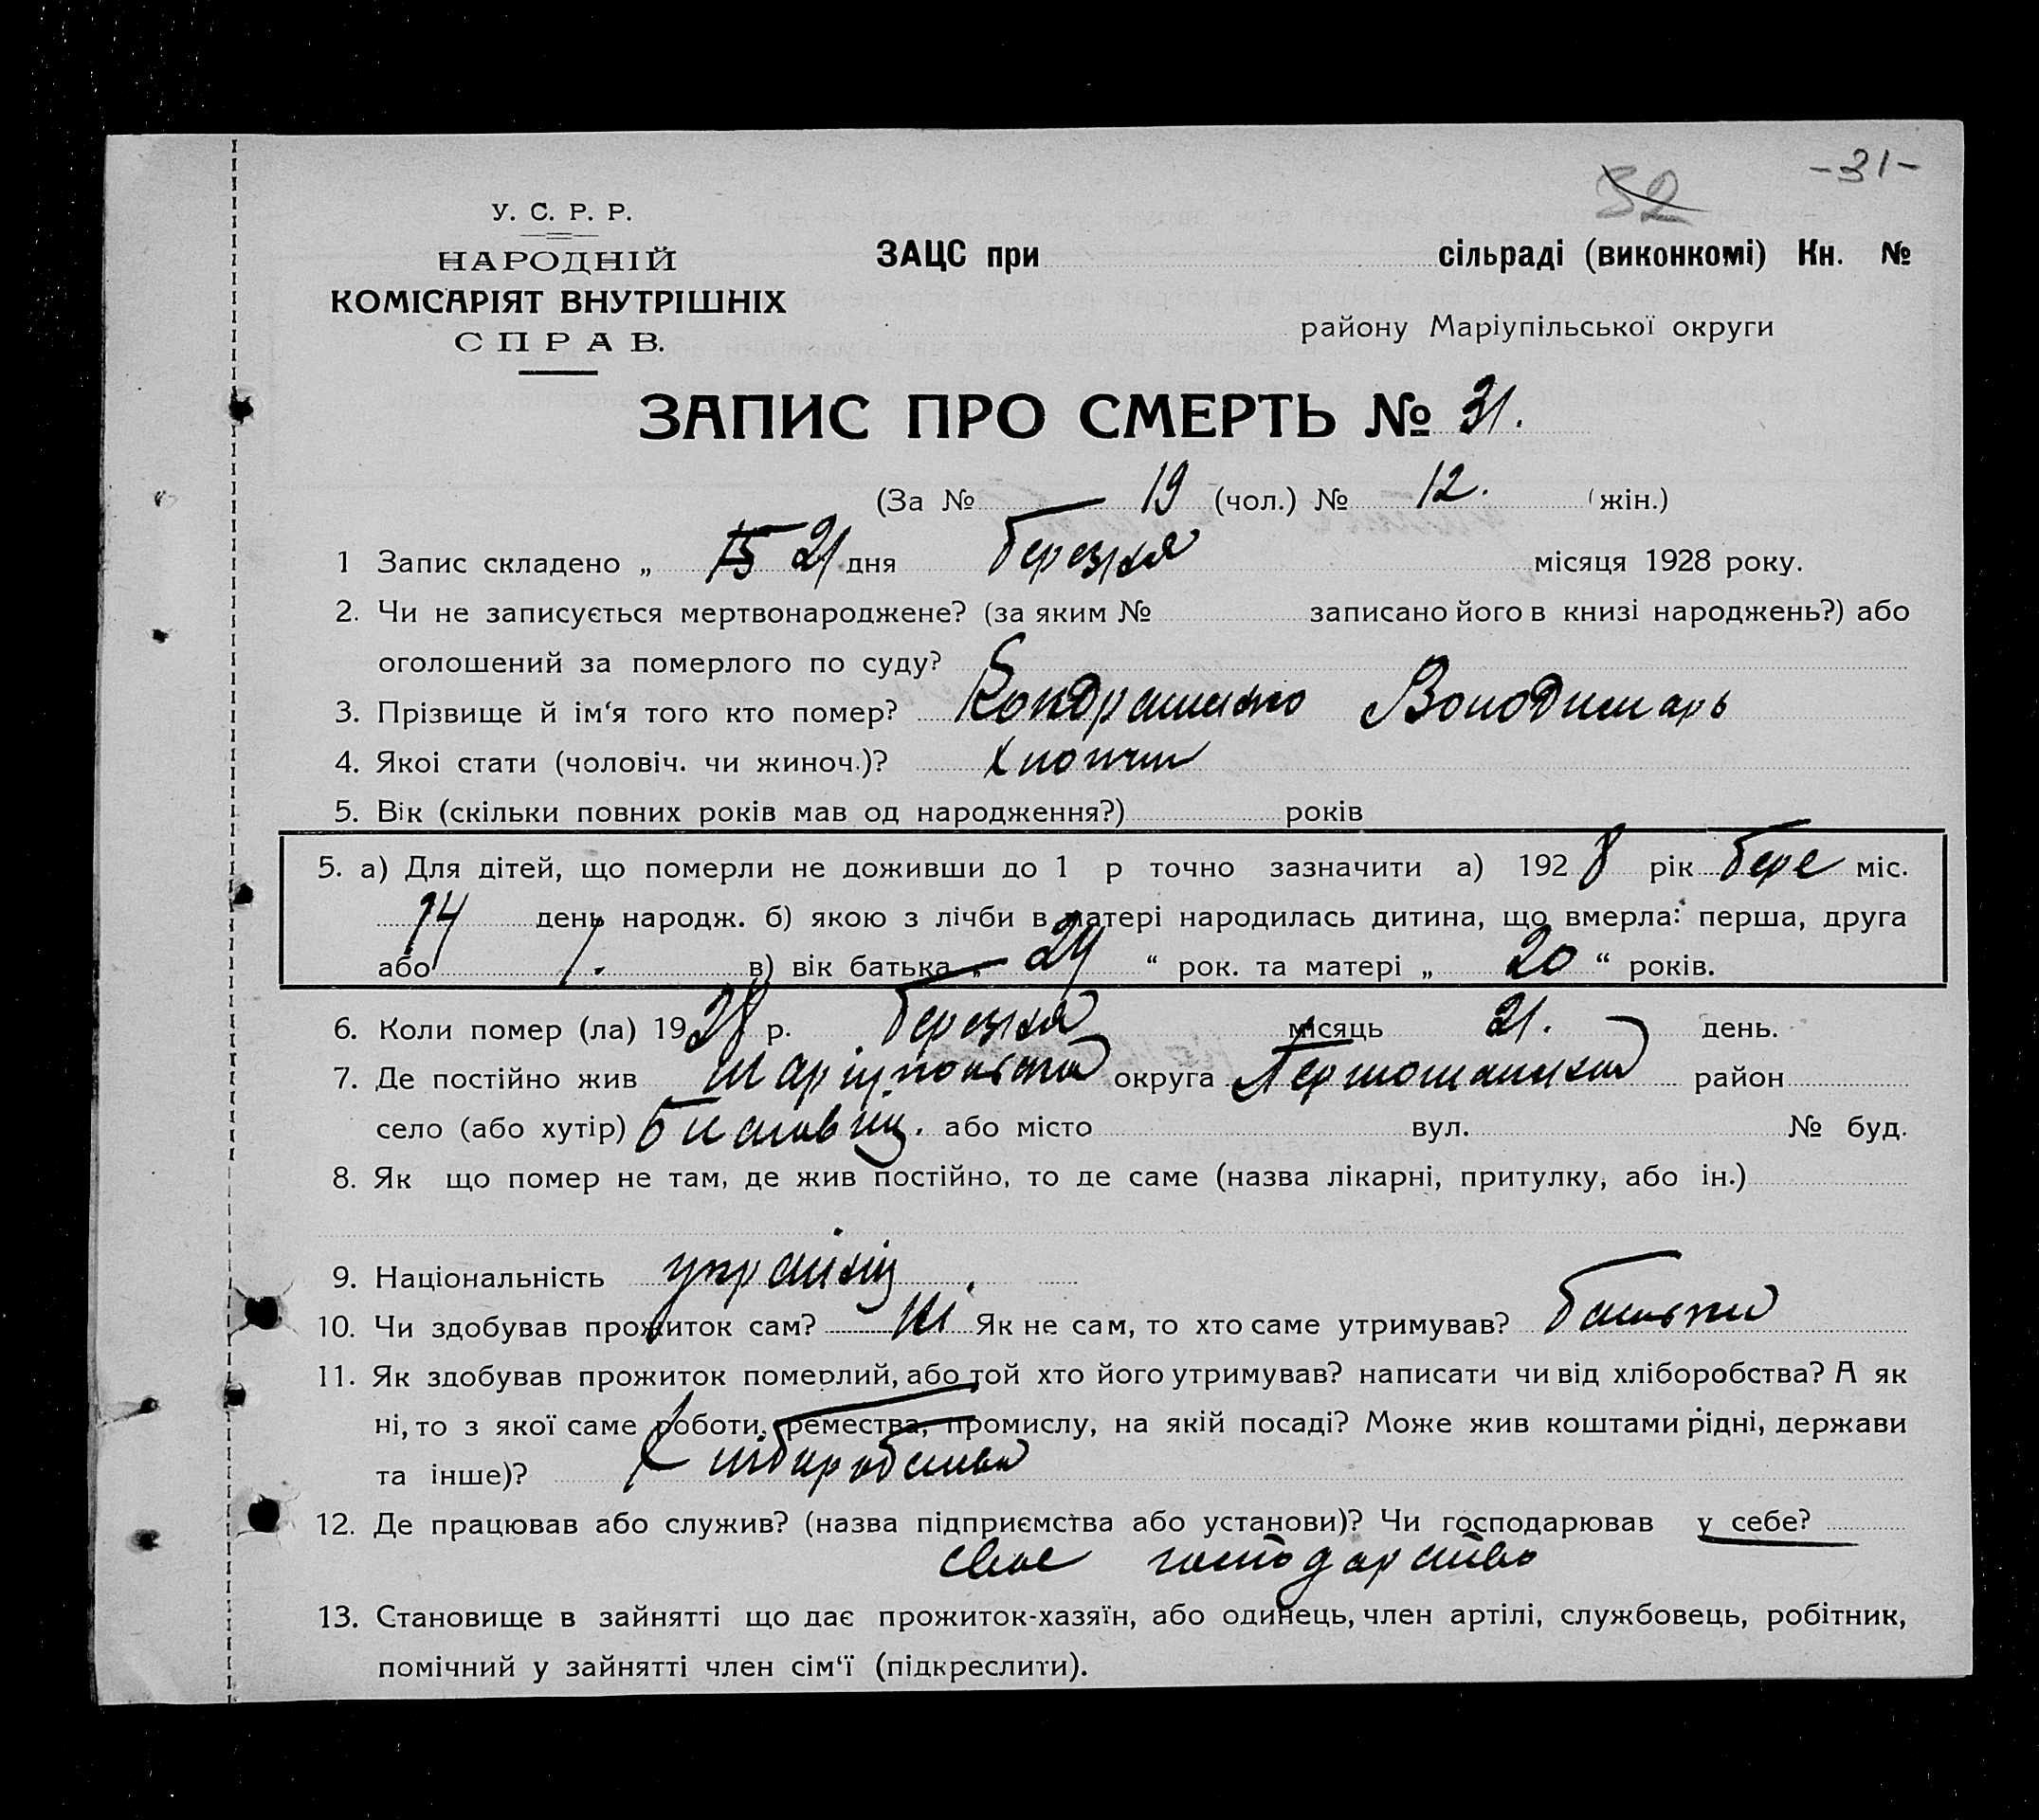 32 -31-
У. С. Р. Р.
НАРОДНІЙ
КОМІСАРІЯТ ВНУТРІШНІХ
СПРАВ.
ЗАЦС при сільраді (виконкомі) Кн. №
району Маріупільської округи
ЗАПИС ПРО СМЕРТЬ № 31.
(За № 19 (чол.) № 12. (жін.)
1 Запис складено „ 15 21 дня березня місяця 1928 року.
2. Чи не записується мертвонароджене? (за яким № записано його в книзі народжень?) або
оголошений за померлого по суду?
3. Прізвище й ім‘я того кто помер? Володимарь
4. Якоі стати (чоловіч. чи жиноч.)? хлопчик
5. Вік (скільки повних років мав од народження?) років
5. а) Для дітей, що померли не доживши до 1 р точно зазначити а) 1928 рік бере міс.
14 день народж. б) якою з лічби в матері народилась дитина, що вмерла: перша, друга
або 1. в) вік батька „ 24 “ рок. та матері „ 20 “ років.
6. Коли помер (ла) 1928 р. березня місяць 21. день.
7. Де постійно жив Маріупольська округа район
село (або хутір) або місто вул. № буд.
8. Як що помер не там, де жив постійно, то де саме (назва лікарні, притулку, або ін.)
9. Національність україніц
10. Чи здобував прожиток сам? ні Як не сам, то хто саме утримував? батьки
11. Як здобував прожиток померлий, або той хто його утримував? написати чи від хліборобства? А як
ні, то з якої саме роботи, ремества, промислу, на якій посаді? Може жив коштами рідні, держави
та інше)? хлібаробства
12. Де працював або служив? (назва підприємства або установи)? Чи господарював у себе?
свое господарство
13. Становище в зайнятті що дає прожиток-хазяїн, або одинець, член артілі, службовець, робітник,
помічний у зайнятті член сім‘ї (підкреслити).